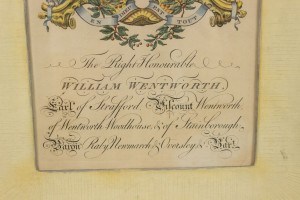 EN TOUT
The Right Honourable
WILLIAM WENTWORTH,
Earl of Strafford Viscount Wentworth
of Wentworth Woodhouse, & of Stainborough
Baron Raby, Newmarch & Oversley & Bar.t